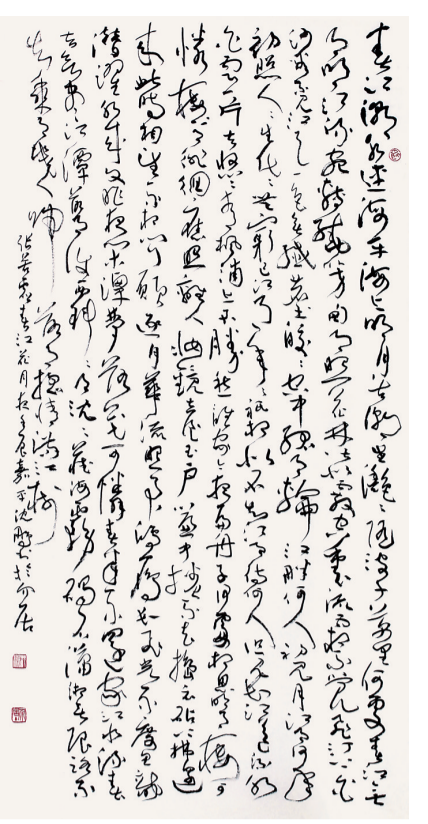 春江潮水連海平海上明月共潮生灩灩隨波千萬里何處春江無
月明江流宛轉繞芳甸月照花林皆似霰空裏流霜不覺飛汀上白
沙看不見江天一色無纖塵皎皎空中孤月輪江畔何人初見月江月何年
初照人人生代代無窮已江月年年祇相似不知江月待何人但見長江送流水
白雲一片去悠悠青楓浦上不勝愁誰家今夜扁舟子何處相思明月樓可
憐樓上月徘徊應照離人妝鏡臺玉戶簾中捲不去擣衣砧上拂還
來此時相望不相聞願逐月華流照君鴻雁長飛光不度魚龍
潛躍水成文昨夜閑潭夢落花可憐春半不還家江水流春
去欲盡江潭落月復西斜斜月沈沈藏海霧碣石瀟湘無限路不
知乘月幾人歸落月搖情滿江樹
張若虛春江花月夜辰嘉平沈鵬書於介居